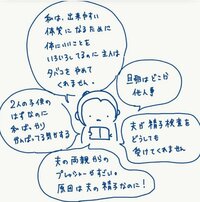 私は、出来やすい
体質になるために
体にいいことを
いろいろしてるのに主人は
タバコをやめて
くれません。
旦那はどこか
他人事
2人の子供の
はずなのに
私ばっかり
がんばってる気がする
夫が精子検査を
どうしても
受けてくれません
夫の両親からの
プレッシャーがすごい。
原因は夫の精子なのに!